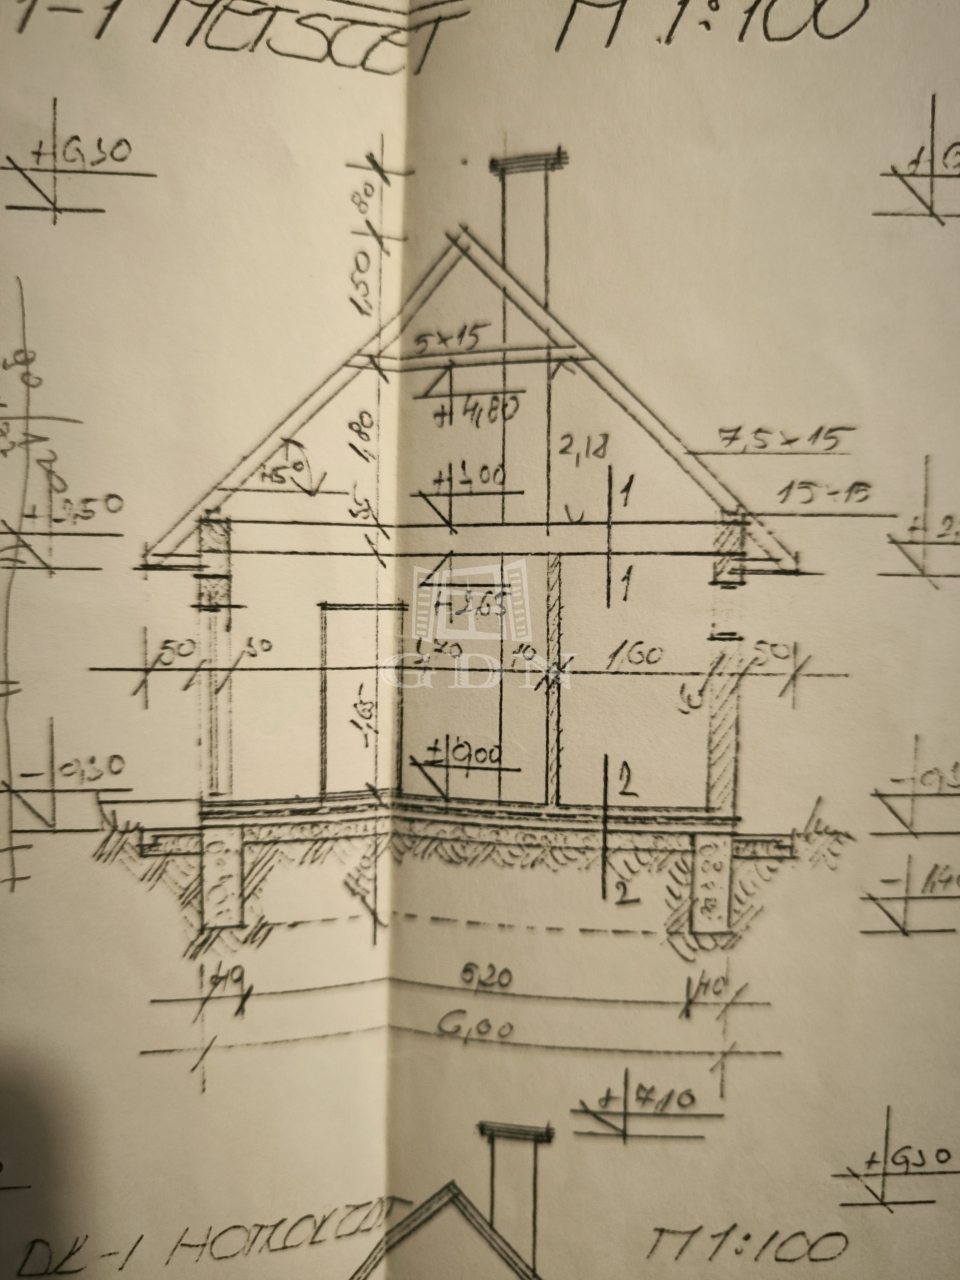 1-1 METSZET M 1:100
+6,30
80
1,50
5×15
+4,80
1,80
2,18
7,5×15
45°
+3,00
1
15-15
+2,50
35
1
+2,65
GDN
50
30
10
1,60
50
2,65
-0,30
±0,00
2
2
-1,40
40
5,20
40
6,00
+7,10
+6,30
DK-1 HOMLOKZAT M 1:100